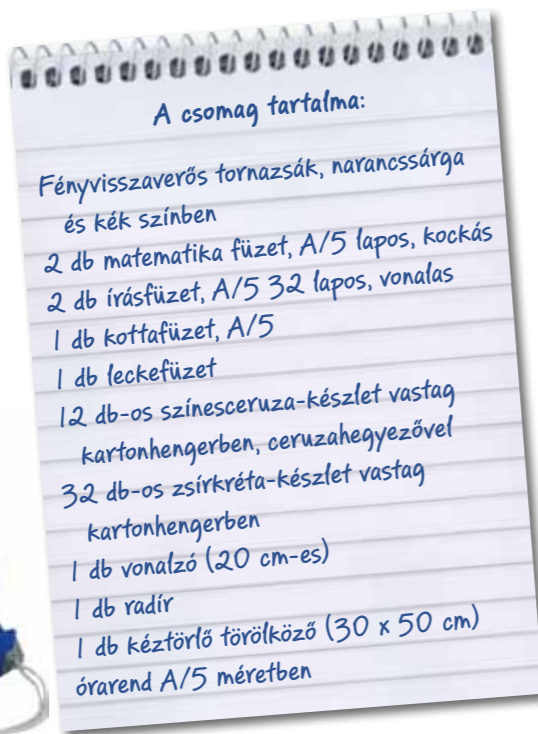 A csomag tartalma:
Fényvisszaverős tornazsák, narancssárga
és kék színben
2 db matematika füzet, A/5 lapos, kockás
2 db írásfüzet, A/5 32 lapos, vonalas
1 db kottafüzet, A/5
1 db leckefüzet
12 db-os színesceruza-készlet vastag
kartonhengerben, ceruzahegyezővel
32 db-os zsírkréta-készlet vastag
kartonhengerben
1 db vonalzó (20 cm-es)
1 db radír
1 db kéztörlő törölköző (30 x 50 cm)
órarend A/5 méretben